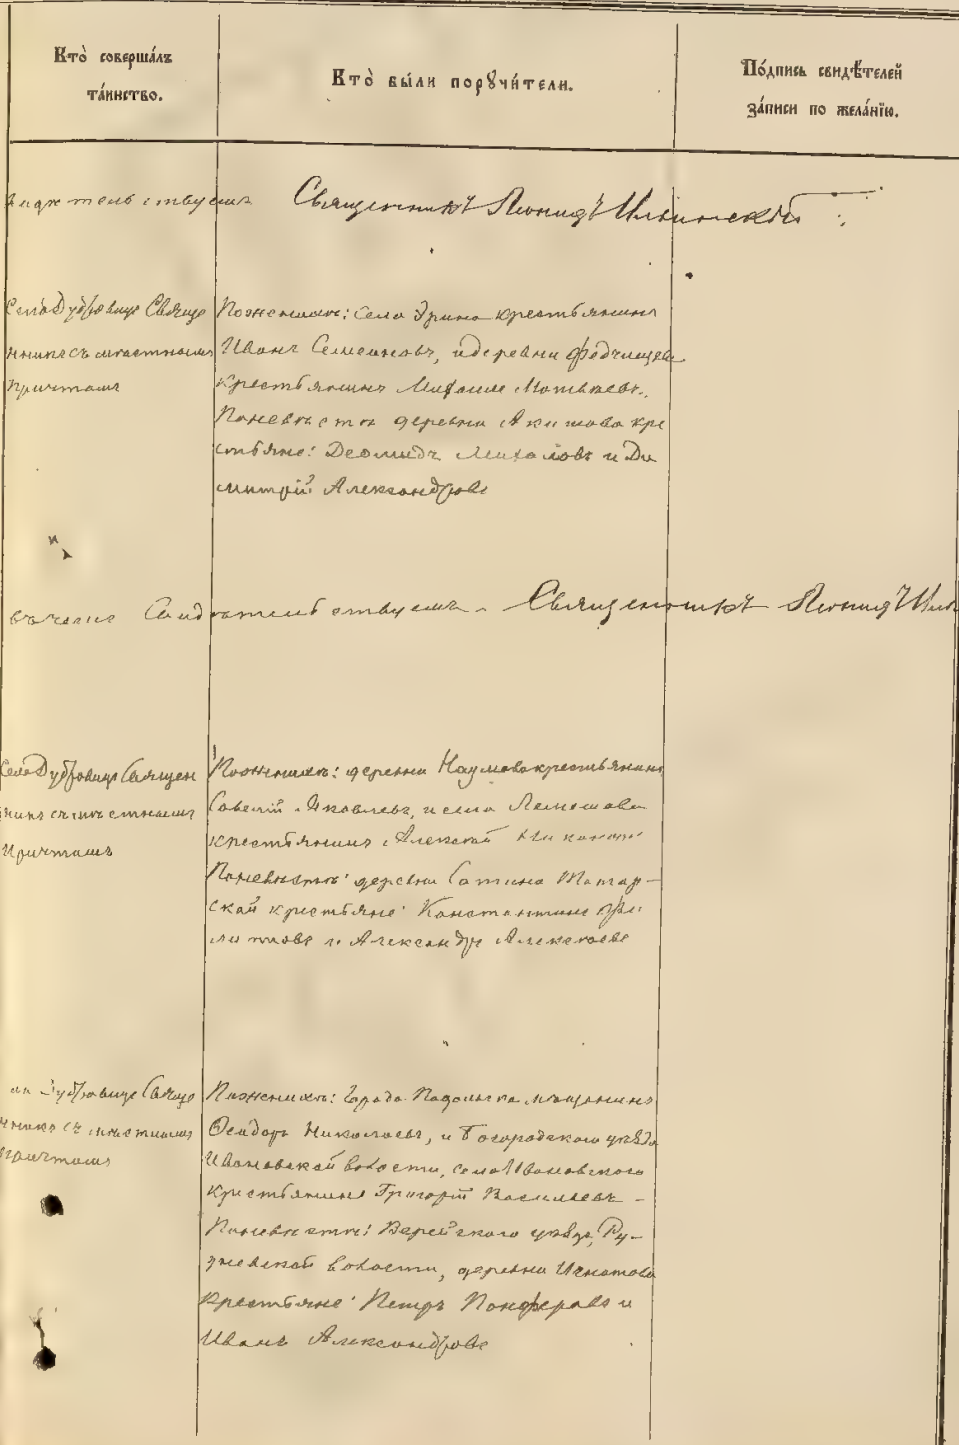 Кто̀ соверша́лъ
та́инство.
Кто̀ бы́ли порꙋчи́тели.
По́дпись свидѣ́телей
за́писи по жела́нїю.
Священникъ Леонидъ Ильинскій
Села Дубровицъ Свяще
нникъ съ мѣстнымъ
причтомъ
По женихѣ: села Ерина крестьянинъ
Иванъ Семеновъ, и деревни
крестьянинъ Михаилъ Матвѣевъ.
По невѣстѣ деревни Акишова кре
стьяне: Деомидъ Михаловъ и Ди
митрій Александровъ
Свидѣтельствуемъ. Священникъ Леонидъ
Села Дубровицъ Священ
никъ съ мѣстнымъ
причтомъ
По женихѣ: деревни Наумова крестьянинъ
Савелій Яковлевъ, и села Лемешова
крестьянинъ Алексѣй
По невѣстѣ: деревни Сатина Татар-
ской крестьяне: Константинъ
и Александръ Алексѣевъ
Дубровицъ Свяще
нникъ съ мѣстнымъ
причтомъ
По женихѣ: города Подольска мѣщанинъ
Ѳедоръ Николаевъ, и Богородского уѣзда
Ивановской волости, села Ивановского
крестьянинъ Григорій Васильевъ -
По невѣстѣ: Верейского уѣзда, Ру-
волости, деревни Игнатова
крестьяне: Петръ Панферовъ и
Иванъ Александровъ